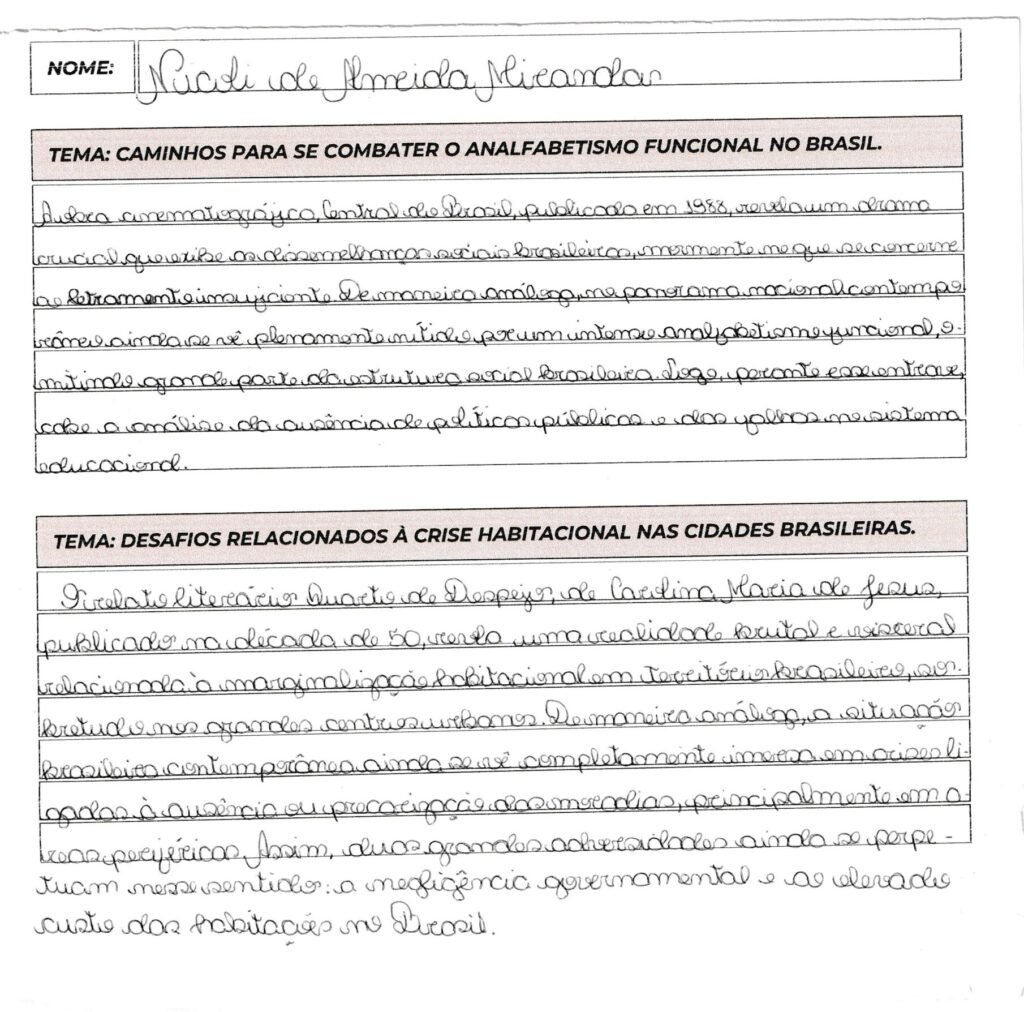 NOME: Nicoli de Almeida Miranda
TEMA: CAMINHOS PARA SE COMBATER O ANALFABETISMO FUNCIONAL NO BRASIL.
A obra cinematográfica, Central do Brasil, publicada em 1988, revela um drama
crucial que exibe as dissemelhanças sociais brasileiras, mormente no que se concerne
ao letramento insuficiente. De maneira análoga, no panorama nacional contempo
râneo ainda se vê plenamente nítido por um intenso analfabetismo funcional, o-
mitindo grande parte da estrutura social brasileira. Logo, perante esse entrave,
cabe a análise da ausência de políticas públicas e das falhas no sistema
educacional.
TEMA: DESAFIOS RELACIONADOS À CRISE HABITACIONAL NAS CIDADES BRASILEIRAS.
O relato literário Quarto de Despejo, de Carolina Maria de Jesus,
publicado na década de 50, revela uma realidade brutal e visceral
relacionada à marginalização habitacional em território brasileiro, so-
bretudo nos grandes centros urbanos. De maneira análoga, a situação
brasileira contemporânea ainda se vê completamente imersa em crises li-
gadas à ausência ou precarização das moradias, principalmente em á-
reas periféricas. Assim, duas grandes adversidades ainda se perpe-
tuam nesse sentido: a negligência governamental e ao elevado
custo das habitações no Brasil.